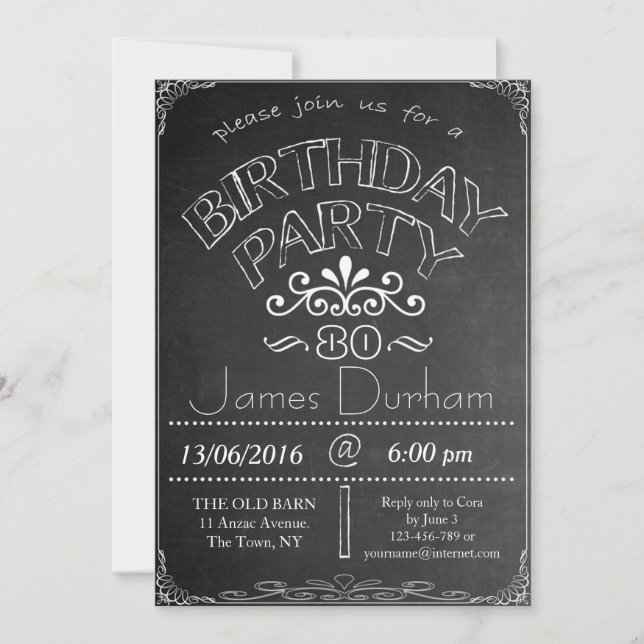 please join us for a
BIRTHDAY
PARTY
~ 80 ~
James Durham
13/06/2016 @ 6:00 pm
THE OLD BARN
11 Anzac Avenue.
The Town, NY
Reply only to Cora
by June 3
123-456-789 or
yourname@internet.com